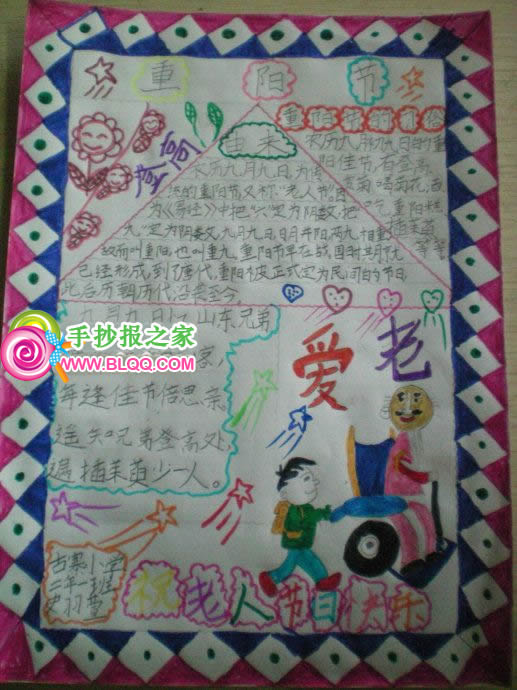 重阳节
重阳节的习俗
登高
由来
农历九月九日的重
阳佳节,有登高
赏菊 喝菊花酒
吃 重阳糕
插茱萸
等等
农历九月九日,为传
统的重阳节,又称"老人节"。因
为《易经》中把"六"定为阴数,把
"九"定为阳数,九月九日,日月并阳,两九相重
故而叫重阳,也叫重九。重阳节早在战国时期就
已经形成,到了唐代,重阳被正式定为民间的节日
此后历朝历代沿袭至今。
九月九日忆山东兄弟
手抄报之家
www.BLQQ.COM
客,
每逢佳节倍思亲
遥知兄弟登高处,
遍插茱萸少一人。
爱老
小学
年一班
祝老人节日快乐